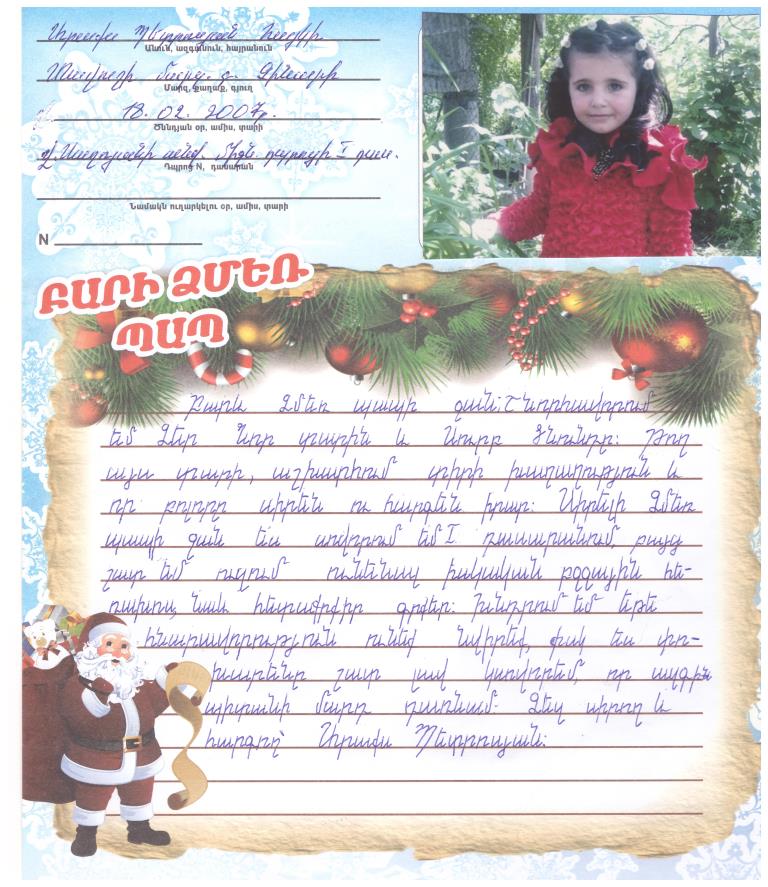 Պետրոսյան
Անուն, ազգանուն, հայրանուն
Տավուշի մարզ գ.
Մարզ, քաղաք, գյուղ
18. 02. 2007թ.
Ծննդյան օր, ամիս, տարի
միջն. դպրոցի I դաս.
Դպրոց N, դասարան
Նամակն ուղարկելու օր, ամիս, տարի
N
ԲԱՐԻ ՁՄԵՌ
ՊԱՊ
Բարև Ձմեռ պապի ջան: Շնորհավորում
եմ Ձեր Նոր տարին և Սուրբ Ծնունդը: Թող
այս տարի, աշխարհում տիրի խաղաղություն և
որ բոլորը սիրեն ու հարգեն իրար: Սիրելի Ձմեռ
պապի ջան ես սովորում եմ I դասարանում, բայց
շատ եմ ուզում ունենալ իսկական բջջային հե-
ռախոս, նաև հետաքրքիր գրքեր: Խնդրում եմ եթե
հնարավորություն ունեք նվիրեք, իսկ ես փո-
խարենը շատ լավ կսովորեմ, որ ազգին
պիտանի մարդ դառնամ: Ձեզ սիրող և
հարգող՝ Պետրոսյան: